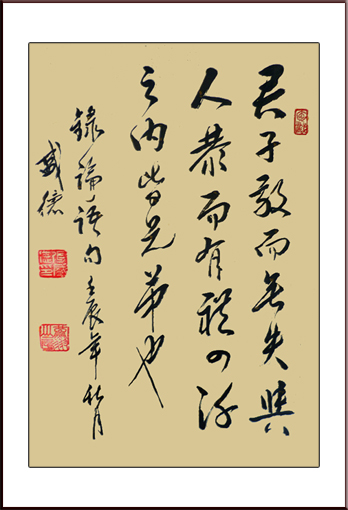 君子敬而無失與
人恭而有禮四海
之内皆兄弟也
錄論語句壬辰年秋月